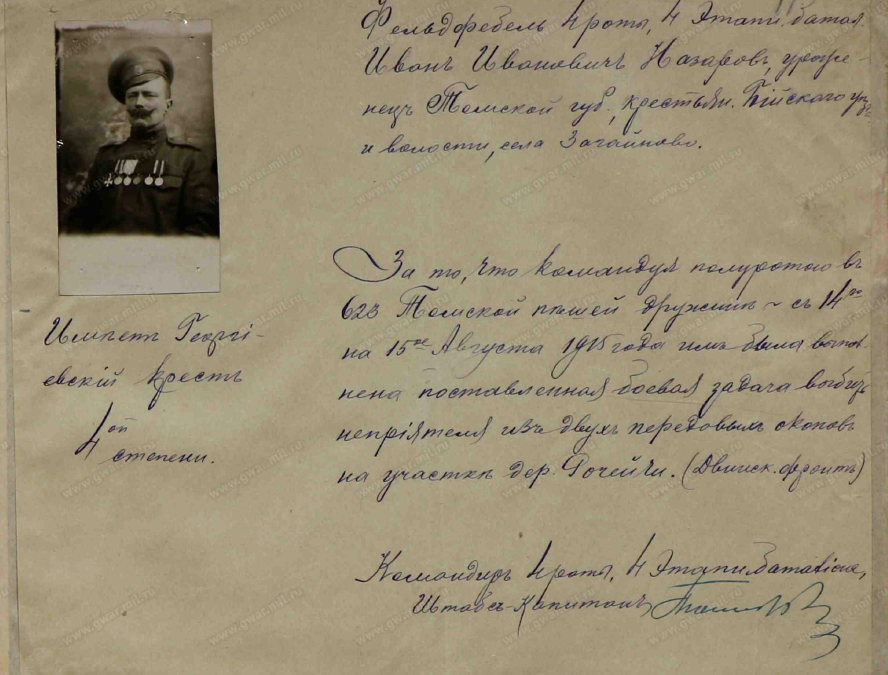 Фельдфебель 4 роты, 4 Этапн. батал.
Иванъ Ивановичъ Назаровъ, уроже-
нецъ Томской губ., крестьян. Бійскаго уѣз.
и волости, села Загайново.
За то, что командуя полуротою въ
623 Томской пѣшей дружинѣ съ 14го
на 15ое Августа 1915 года имъ была выпол-
нена поставленная боевая задача выбить
непріятеля изъ двухъ передовыхъ окоповъ
на участкѣ дер. (Двинск. фронтъ)
Имѣетъ Георгі-
евскій крестъ
4ой
степени.
Командиръ 4 роты, 4 Этапн. баталіона,
Штабсъ-Капитанъ
www.gwar.mil.ru